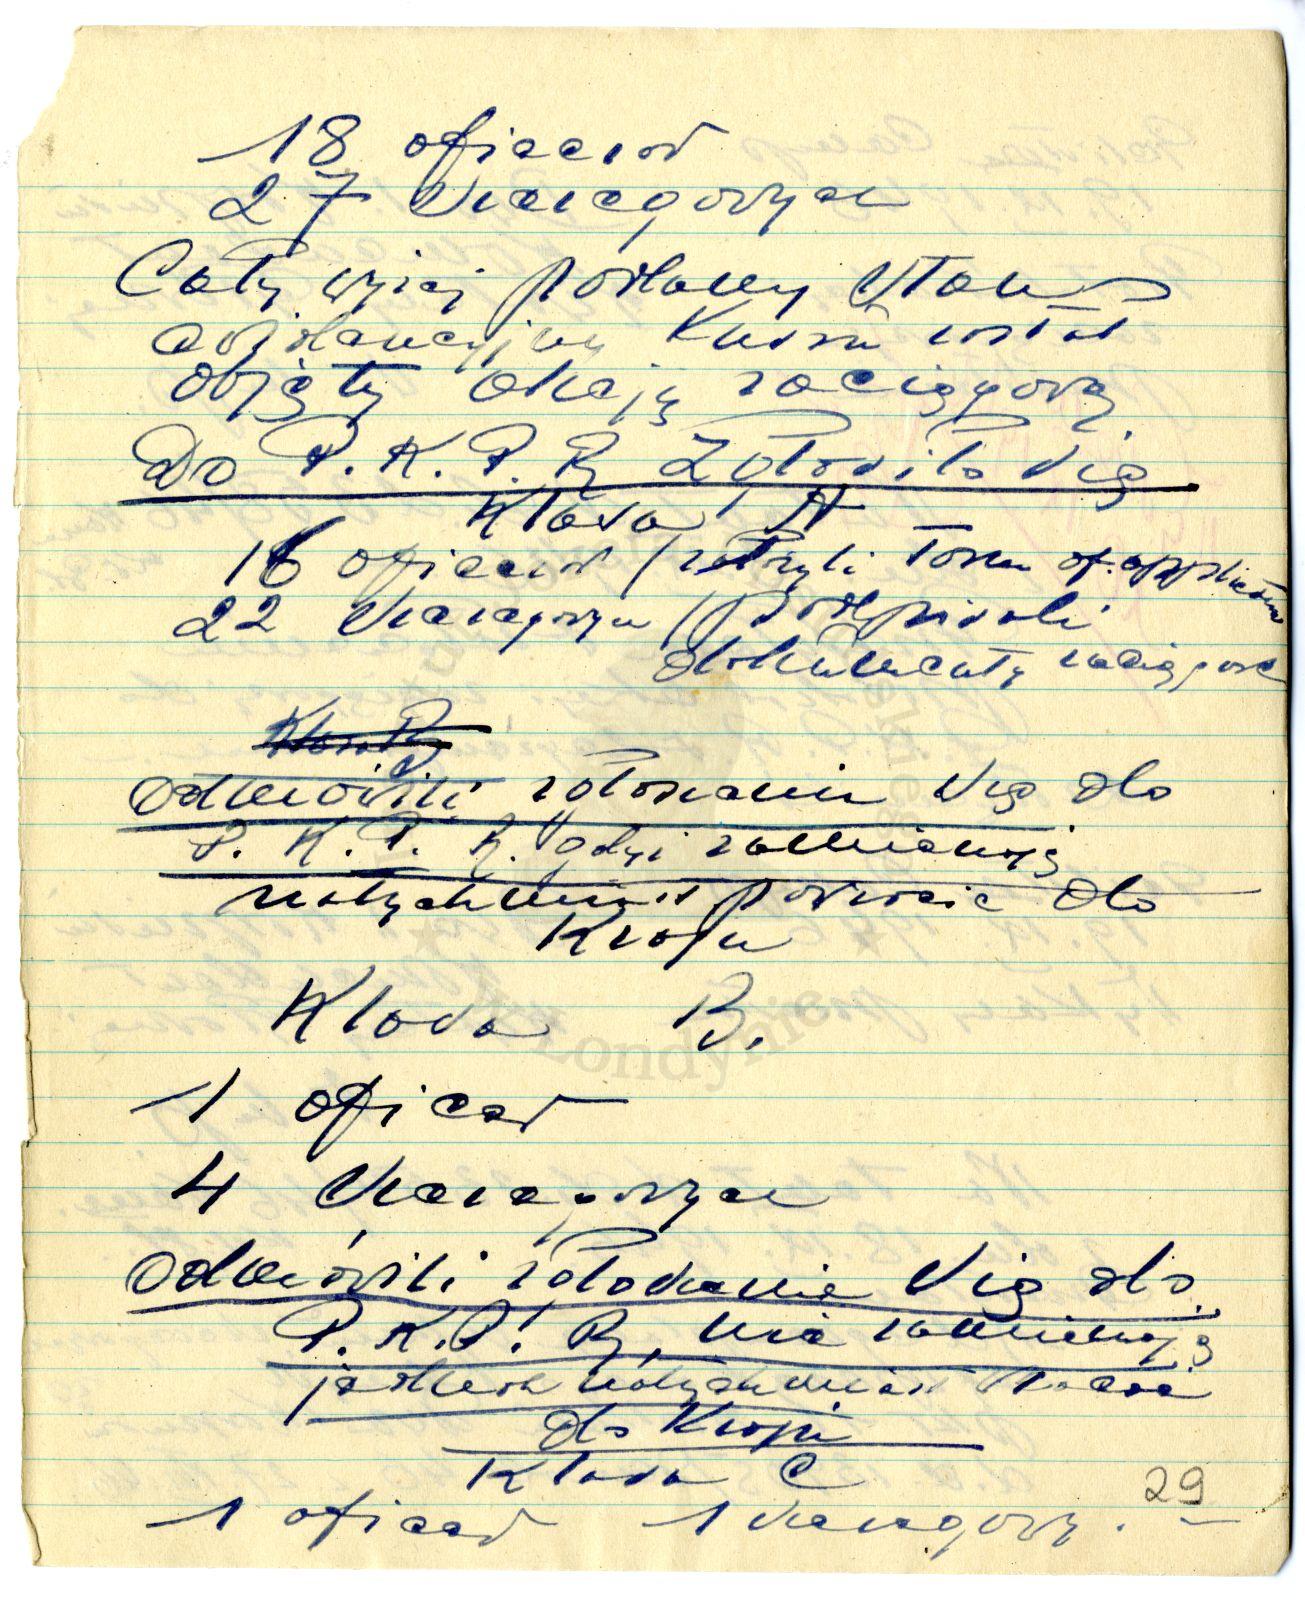 18 oficerów
27 szeregowych
Cały wyżej podany stan
ewidencyjny Kursu został
objęty akcją zaciągową.
Do P.K.P.R. zgłosiło się
Klasa A
16 oficerów (złożyli form of. application
22 szeregowych (podpisali
dokumenty zaciągowe
Klasa B
Odmówili zgłoszenia się do
P.K.P.R. gdyż zamierzają
natychmiast powrócić do
Kraju
Klasa B.
1 oficer
4 szeregowych
Odmówili zgłoszenia się do
P.K.P.R, nie zamierzają
jednak natychmiast wracać
do Kraju
Klasa C
1 oficer 1 szeregowy.
29
w Londynie